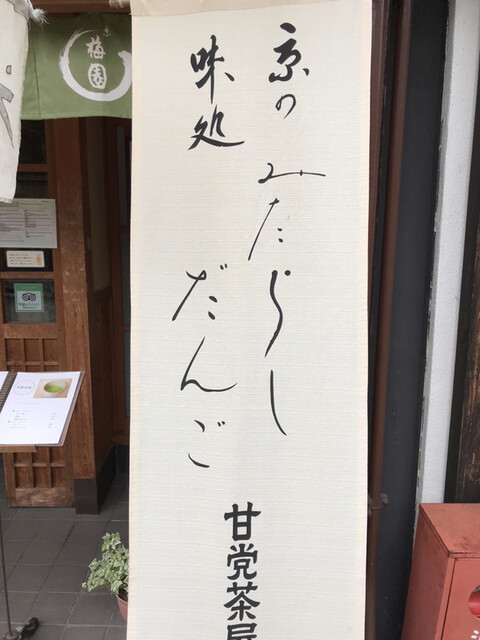 京の
味処
みたらし
だんご
甘党茶屋
梅園